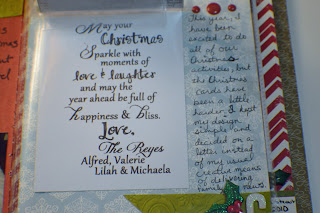 May your
Christmas
Sparkle with
moments of
love & laughter
and may the
year ahead be full of
happiness & bliss.
Love,
The Reyes
Alfred, Valerie
Lilah & Michaela
This year, I
have been
excited to do
all of our
Christmas
activities, but
the Christmas
Cards have
been a little
harder. I kept
my design
simple and
decided on a
letter instead
of my usual
creative means
of delivering
family news.
2010